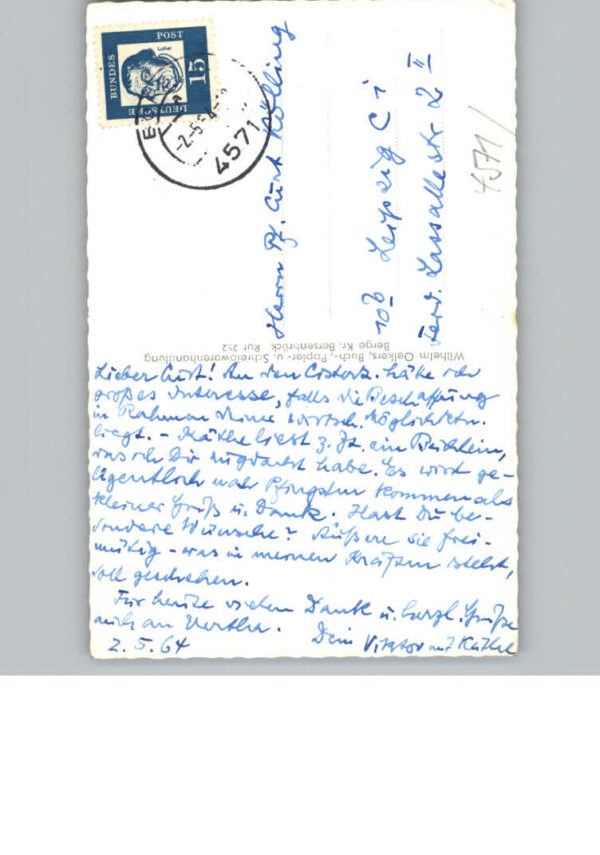 DEUTSCHE
BUNDES
POST
15
Luther
-2.-5.
4571
Herrn Pf. Curt Kölling
10b Leipzig C 1
Ferd. Lassallestr. 2 II
4571/
Wilhelm Oelkers, Buch-, Papier- u. Schreibwarenhandlung
Berge Kr. Bersenbrück, Ruf 252
Lieber Curt! An den hätte ich
großes Interesse, falls die Beschaffung
im Rahmen Deiner wirtsch. Möglichktn.
liegt. - Käthe liest z. Zt. ein Büchlein,
was ich Dir zugdacht habe. Es wird ge-
legentlich nach Pfingsten kommen als
kleiner Gruß u. Dank. Hast Du be-
sondere Wünsche? Äußere sie frei-
mütig - was in meinen Kräften steht,
soll geschehen.
Für heute vielen Dank u. herzl. Grüße
auch an Hertha.
2.5.64 Dein Viktor mit Käthe